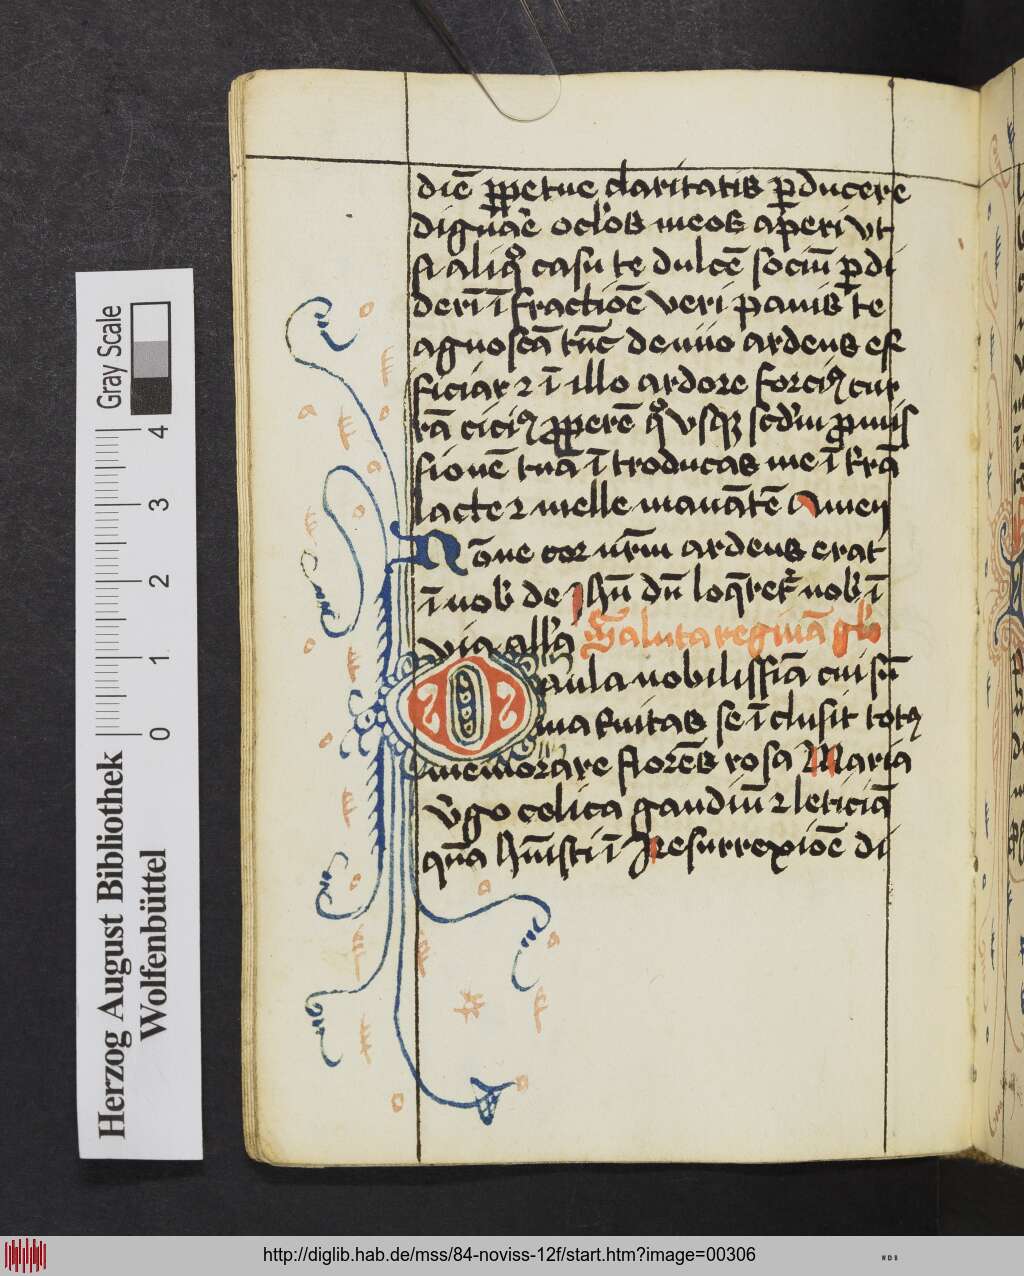 diē ꝑpetue claritatis ꝑducere
dignāʾe oclʾos meos aperi vt
si aliqͦ casu te dulcē sociū ꝑdi
derī ī fractiōe veri panis te
agnoscā tūc denuo ardens ef
ficiar ⁊ ī illo ardore forciꝰ cur
rā ciciꝰ ꝓperē qͦ vsqꝫ scdʾm ꝓmis
sionē tuā ītroducas me ī tʾrā
lacte ⁊ melle manātē Amen
Nōne cor nrʾm ardens erat
ī nobʾ de Ihū dū loqʾretʾ nobʾ ī
via allʾa Saluta reginā glʾ
O aula nobilissīa cui sū
ma tʾnitas se īclusit totꝰ
memorare florēs rosa Maria
vʾgo celica gaudiū ⁊ leticiā
quā hūisti ī Resurrexiōe di
Gray Scale
4
3
2
1
0
Herzog August Bibliothek
Wolfenbüttel
http://diglib.hab.de/mss/84-noviss-12f/start.htm?image=00306